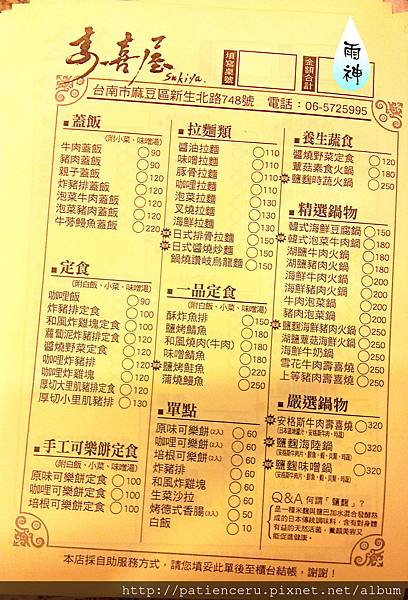 壽喜屋
Sukiya.
填寫桌號
金額合計
雨神
台南市麻豆區新生北路748號 電話：06-5725995
■蓋飯
(附小菜、味噌湯)
牛肉蓋飯 90
豬肉蓋飯 90
親子蓋飯
炸豬排蓋飯
泡菜牛肉蓋飯
泡菜豬肉蓋飯
牛蒡鰻魚蓋飯 220
■定食
(附白飯、小菜、味噌湯)
咖哩飯 90
炸豬排定食 100
和風炸雞塊定食 100
蘿蔔泥炸豬排定食
醬燒野菜定食
咖哩炸豬排
咖哩炸雞塊
厚切大里肌豬排定食
厚切小里肌豬排
■手工可樂餅定食
(附白飯、小菜、味噌湯)
原味可樂餅定食 100
咖哩可樂餅定食 100
培根可樂餅定食 100
■拉麵類
醬油拉麵 110
味噌拉麵 110
豚骨拉麵
咖哩拉麵
泡菜拉麵
叉燒拉麵
海鮮拉麵
日式排骨拉麵
日式醬燒炒麵
鍋燒讚岐烏龍麵 150
■一品定食
(附白飯、小菜、味噌湯)
酥炸魚排 150
鹽烤鯖魚
和風燒肉(牛肉) 180
味噌鯖魚
鹽烤鮭魚
蒲燒鰻魚 250
■單點
原味可樂餅(2入) 60
咖哩可樂餅(2入) 60
培根可樂餅(2入) 60
炸豬排
和風炸雞塊
生菜沙拉
烤德式香腸(2入) 50
白飯 10
■養生蔬食
醬燒野菜定食 120
蕈菇素食火鍋
鹽麴時蔬火鍋 250
■精選鍋物
韓式海鮮豆腐鍋 150
韓式泡菜牛肉鍋 180
湖鹽牛肉火鍋
湖鹽豬肉火鍋
海鮮牛肉火鍋
海鮮豬肉火鍋 200
牛肉泡菜鍋 200
豬肉泡菜鍋 200
鹽麴海鮮豬肉火鍋
湖鹽蕈菇海鮮火鍋
海鮮牛奶鍋 250
雪花牛肉壽喜燒
上等豬肉壽喜燒
■嚴選鍋物
安格斯牛肉壽喜燒 320
鹽麴海陸鍋 320
鹽麴味噌鍋 320
Q&A 何謂「鹽麴」?
是一種米麴與鹽巴加水混合發酵熟
成的日本傳統調味料，含有對身體
有益的天然活菌，養顏美容又
能促進健康。
本店採自助服務方式，請您填妥此單後至櫃台結帳，謝謝！
http://patienceru.pixnet.net/album